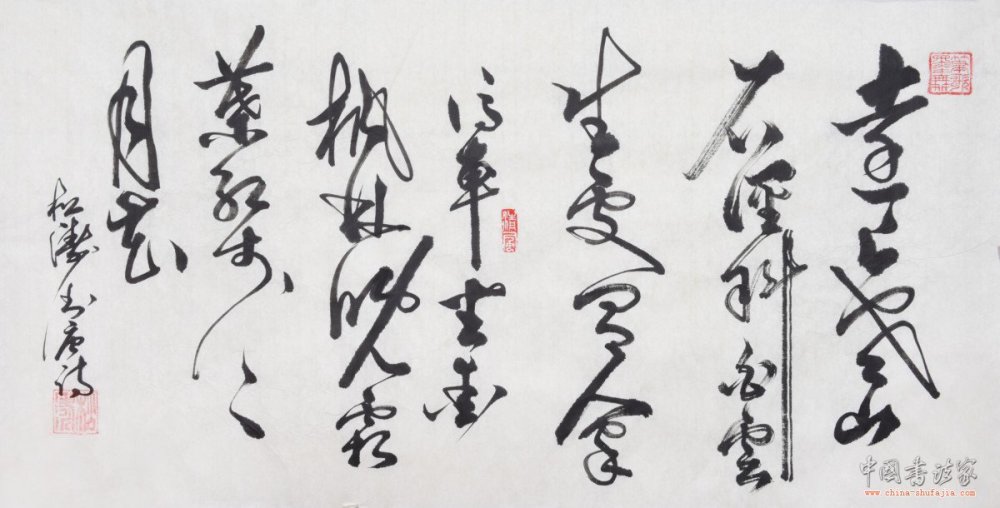 遠上寒山
石徑斜白雲
生處有人家
停車坐愛
楓林晚霜
葉紅於二
月花
松濤書唐詩
中國書法家
www.china-shufajia.com